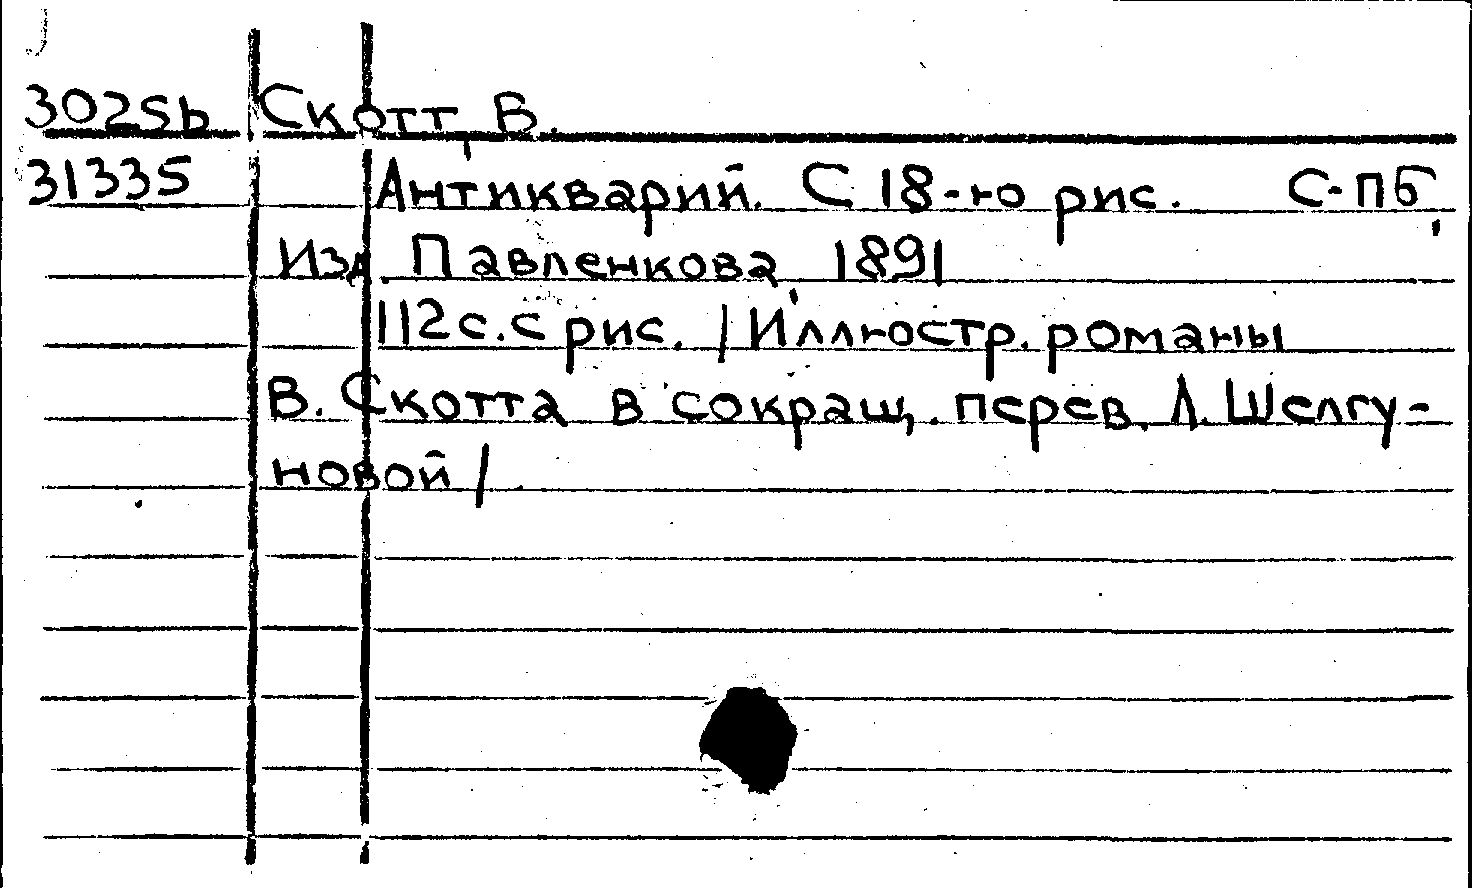 3025b Скотт, В.
31335 Антикварий. С 18-ю рис. С-ПБ,
Изд. Павленкова, 1891
112с. с рис. /Иллюстр. романы
В. Скотта в сокращ. перев. Л. Шелгу-
новой/